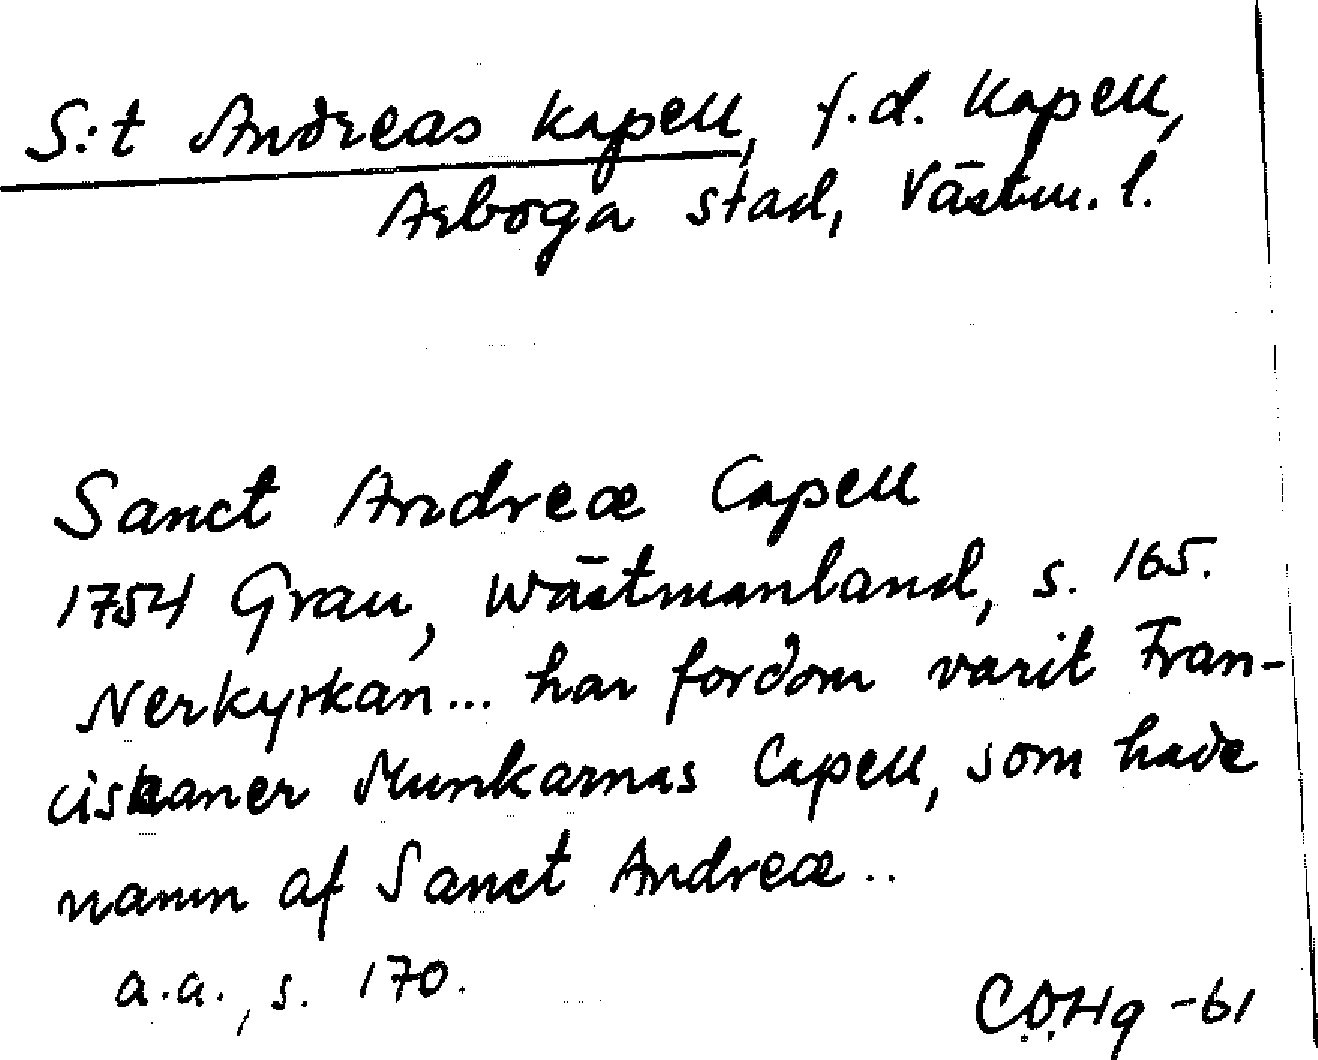 S:t Andreas kapell, f.d. kapell,
Arboga stad, Västm. l.
Sanct Andreæ Capell
1754 Grau, Wästmanland, s. 165.
Nerkyrkan... har fordom varit Fran-
ciskaner Munkarnas Capell, som hade
namn af Sanct Andreæ..
a.a., s. 170.
C.O.Hg -61